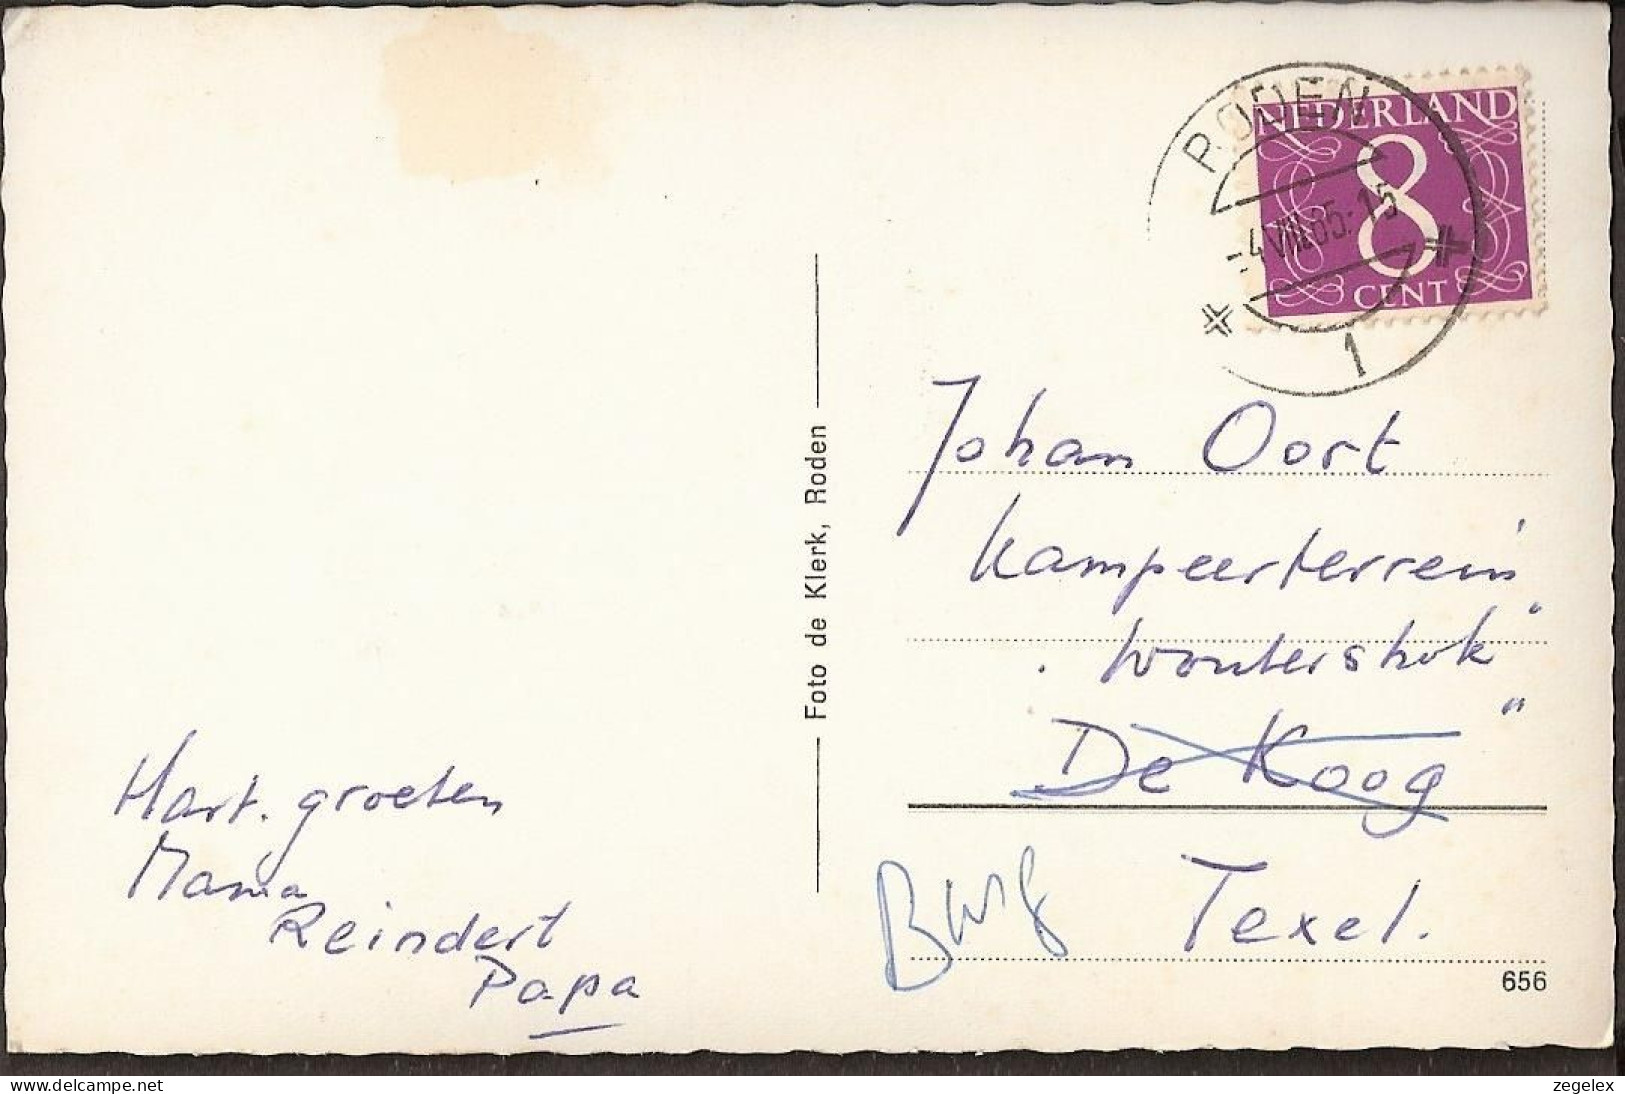 RODEN
-4.VIII.65.15
1
NEDERLAND
8
CENT
Johan Oort
Kampeerterrein
"
De Koog
Burg Texel.
656
Foto de Klerk, Roden
Hart. groeten
Mama
Reindert
Papa
www.delcampe.net
zegelex